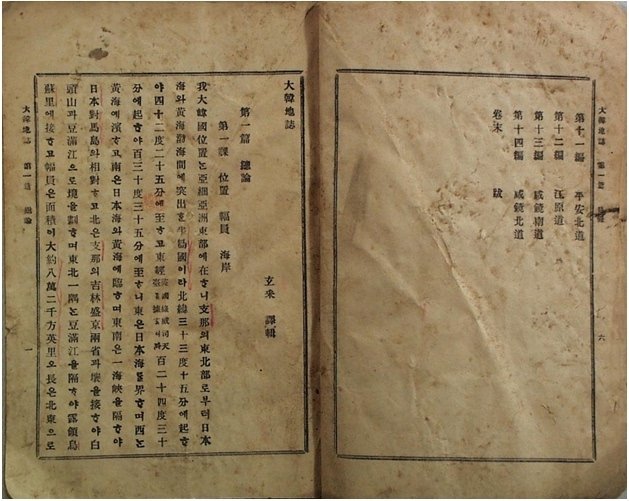 大韓地誌 第一篇 六
第十一編 平安北道
第十二編 江原道
第十三編 咸鏡南道
第十四編 咸鏡北道
卷末 跋
大韓地誌
玄采 譯輯
第一篇 總論
第一課 位置 幅員 海岸
我大韓國位置ᄂᆞᆫ亞細亞洲東部에在ᄒᆞ니支那의東北部로부터日本
海와黃海渤海間에突出ᄒᆞᆫ半島國이라北緯三十三度十五分에起ᄒᆞ
야四十二度二十五分에至ᄒᆞ고東經英國綠威司天臺 百二十四度三十
分에起ᄒᆞ야百三十度三十五分에至ᄒᆞ니東은日本海를界ᄒᆞ며西ᄂᆞᆫ
黃海에濱ᄒᆞ고南은日本海와黃海에臨ᄒᆞ며東南은一海峽을隔ᄒᆞ야
日本對馬島와相對ᄒᆞ고北은支那의吉林盛京兩省과壤을接ᄒᆞ야白
頭山과豆滿江으로境을劃ᄒᆞ며東北一隅ᄂᆞᆫ豆滿江을隔ᄒᆞ야露領烏
蘇里에接ᄒᆞ고幅員은面積이大約八萬二千方英里오長은北東으로
大韓地誌 第一篇 總論 一